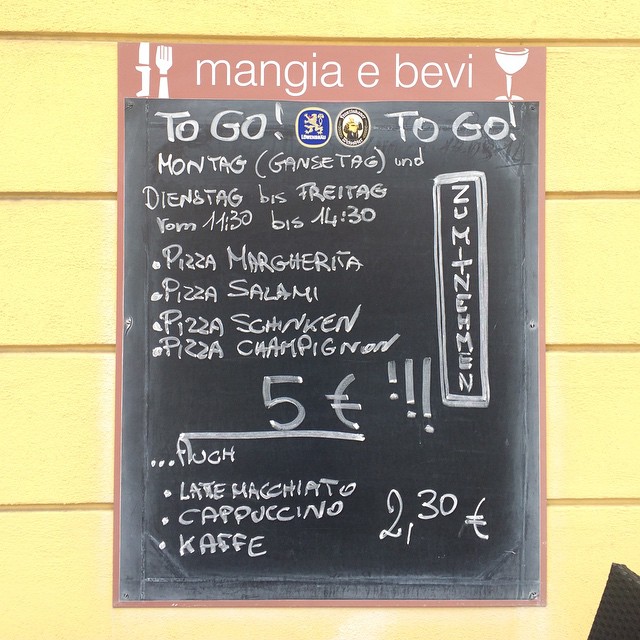 mangia e bevi
TO GO! LÖWENBRÄU TO GO!
MONTAG (GANSETAG) und
DIENSTAG bis FREITAG
vom 11:30 bis 14:30
ZUMITNEHMEN
• PIZZA MARGHERITA
• PIZZA SALAMI
• PIZZA SCHINKEN
• PIZZA CHAMPIGNON
5 € !!!
...AUCH
• LATE MACCHIATO
• CAPPUCCINO
• KAFFE
2,30 €